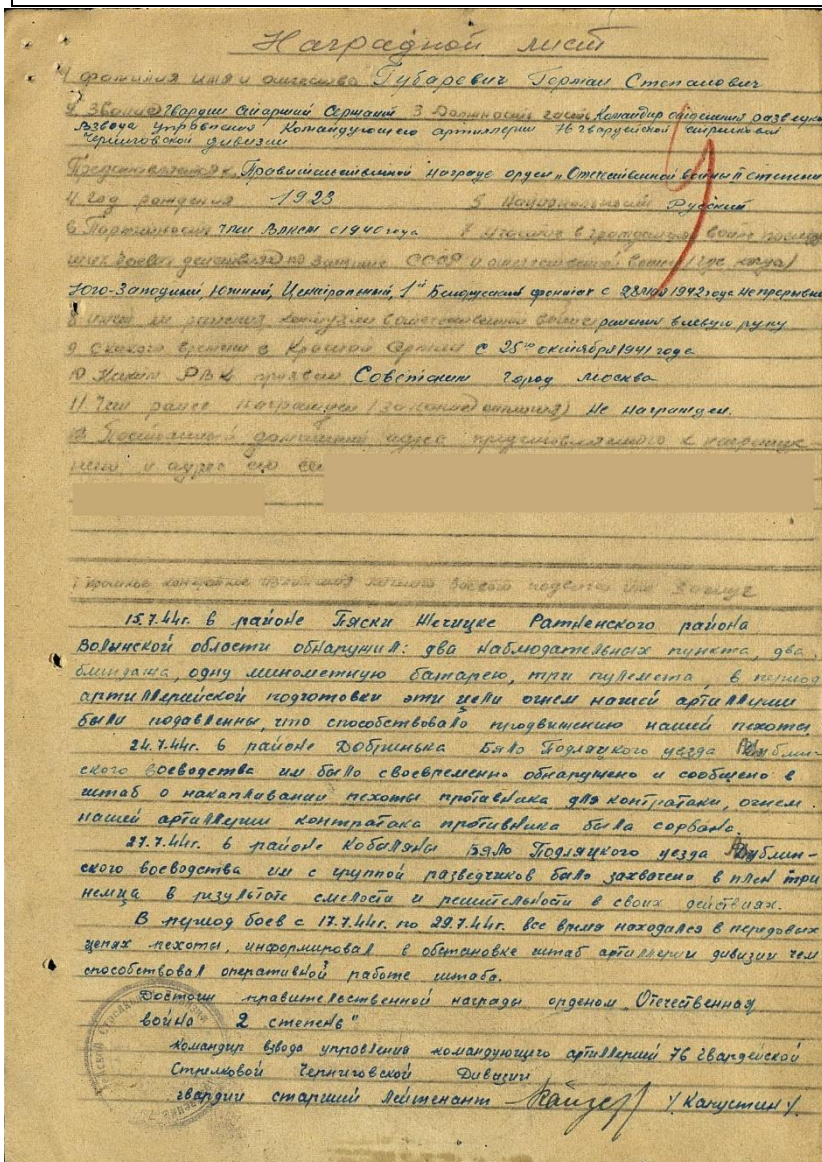 Наградной лист
1 фамилия имя и отчество Губаревич Герман Степанович
2 Звание Гвардии Старший Сержант 3 Должность часть Командир отделения разведки
Взвода управления Командующего артиллерии 76 гвардейской стрелковой
Черниговской дивизии
Представляется к Правительственной награде орден „Отечественной войны II степени
4 год рождения 1923 5 Национальность Русский
6 Партийность член ВЛКСМ с 1940 года 7 участие в гражданской войне последу
ших боевых действиях по защите СССР и отечественной войне (где когда)
Юго-Западный, Южный, Центральный, 1й Белорусский фронтах с 28 мая 1942 года непрерывно
8 имеет ли ранения контузии в отечественной войне ранения в левую руку
9 с какого времени в Красной Армии с 25го октября 1941 года
10 Каким РВК призван Советским город Москва
11 Чем ранее награжден (за какие отличия) Не награжден.
12 Постоянный домашний адрес представляемого к награжде-
нию и адрес его се
1 Краткое конкретное изложение личного боевого подвига или заслуг
15.7.44г. в районе Пяски Жечицке Ратненского района
Волынской области обнаружил: два наблюдательных пункта, два
блиндажа, одну минометную батарею, три пулемета, в период
артиллерийской подготовки эти цели огнем нашей артиллерии
были подавленны, что способствовало продвижению нашей пехоты
24.7.44г. в районе Добринька Бяло Подляцкого уезда Люблин-
ского воеводства им было своевременно обнаружено и сообщено в
штаб о накапливании пехоты противника для контратаки, огнем
нашей артиллерии контратака противника была сорвана.
27.7.44г. в районе Кобыляны Бяло Подляцкого уезда Люблин-
ского воеводства им с группой разведчиков было захвачено в плен три
немца в результате смелости и решительности в своих действиях.
В период боев с 17.7.44г. по 29.7.44г. все время находался в передовых
цепях пехоты, информировал в обстановке штаб артиллерии дивизии чем
способствовал оперативной работе штаба.
Достоин правительственной награды орденом „Отечественная
война 2 степень"
Командир взвода управления командующего артиллерией 76 Гвардейской
Стрелковой Черниговской Дивизии
гвардии старший лейтенант / Капустин /.